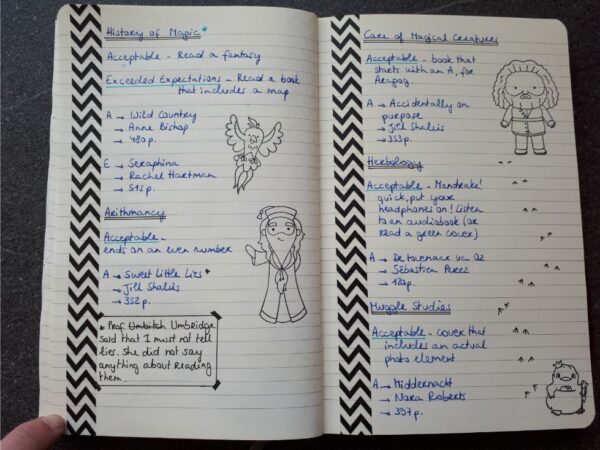 History of Magic *
Acceptable - Read a fantasy
Exceeded Expectations - Read a book
that includes a map
A → Wild Country
→ Anne Bishop
→ 480 p.
E → Seraphina
→ Rachel Hartman
→ 515 p.
Arithmancy
Acceptable -
ends on an even number
A → Sweet Little Lies *
→ Jill Shalvis
→ 352 p.
* Prof. Umbitch Umbridge
said that I must not tell
lies. She did not say
anything about reading
them.
Care of Magical Creatures
Acceptable - book that
starts with an A, for
Aragog
A → Accidentally on
purpose
→ Jill Shalvis
→ 353 p.
Herbology
Acceptable - Mandrake!
quick, put your
headphones on! Listen
to an audiobook (or
read a green cover)
A → De tovenaar van Oz
→ Sébastien Perez
→ 120 p.
Muggle Studies
Acceptable - cover that
includes an actual
photo element
A → Middernacht
→ Nora Roberts
→ 397 p.